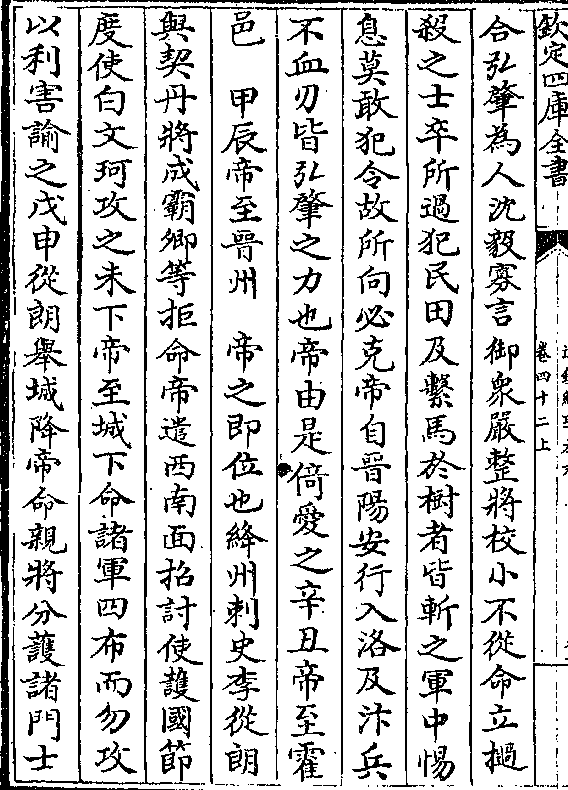 欽定四庫全書
卷四十二上
合弘肇為人沈毅寡言御衆嚴整將校小不從命立撾
殺之士卒所過犯民田及繫馬於樹者皆斬之軍中惕
息莫敢犯令故所向必克帝自晉陽安行入洛及汴兵
不血刃皆弘肇之力也帝由是倚愛之辛丑帝至霍
邑 甲辰帝至晉州 帝之即位也絳州刺史李從朗
與契丹將成霸卿等拒命帝遣西南面招討使護國節
度使白文珂攻之未下帝至城下命諸軍四布而勿攻
以利害諭之戊申從朗舉城降帝命親將分護諸門士